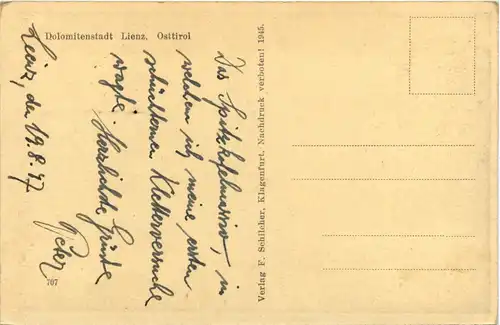 Dolomitenstadt Lienz, Osttirol
Lienz, den 19.8.47
Das Spitzkofelmassiv, in
welchem ich meine ersten
schüchternen Kletterversuche
wagte. Herzlichste Grüsse
Peter
707
Verlag F. Schilcher, Klagenfurt. Nachdruck verboten! 1945.